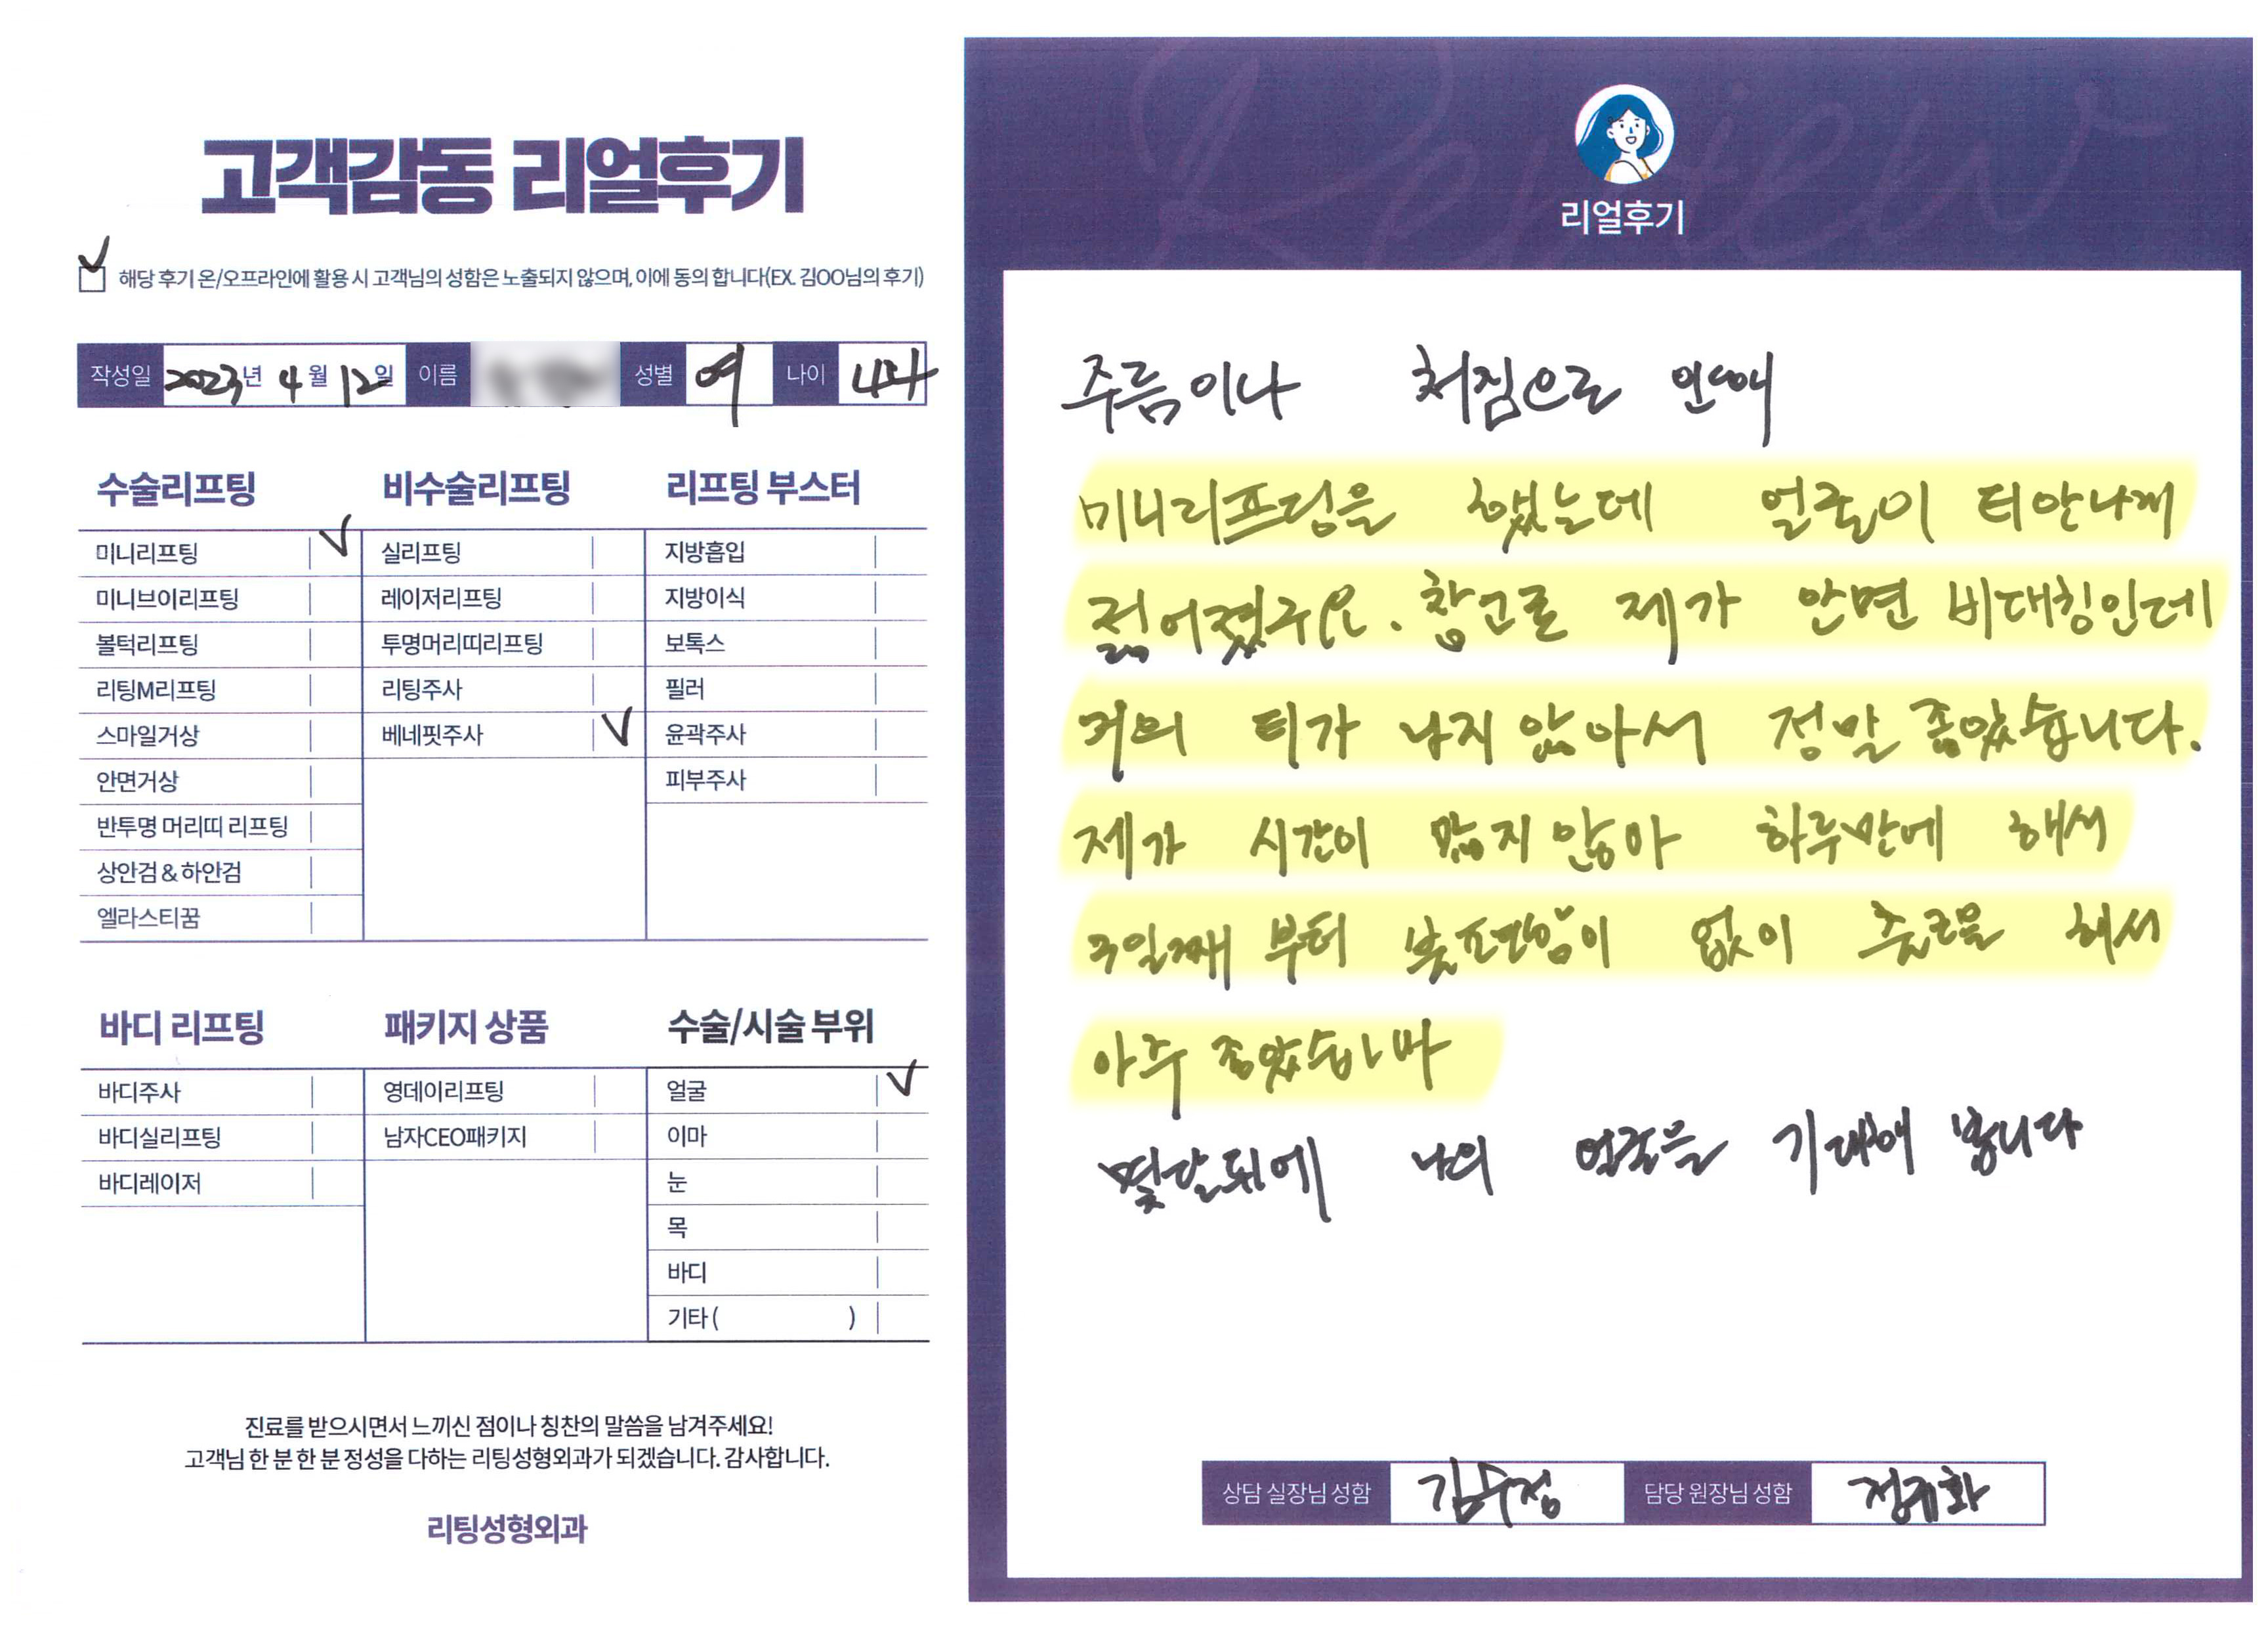 고객감동 리얼후기
해당 후기 온/오프라인에 활용 시 고객님의 성함은 노출되지 않으며, 이에 동의 합니다(EX. 김OO님의 후기)
작성일 2023년 4월 12일 이름 성별 여 나이
수술리프팅 비수술리프팅 리프팅 부스터
미니리프팅 실리프팅 지방흡입
미니브이리프팅 레이저리프팅 지방이식
볼턱리프팅 투명머리띠리프팅 보톡스
리팅M리프팅 리팅주사 필러
스마일거상 베네핏주사 윤곽주사
안면거상 피부주사
반투명 머리띠 리프팅
상안검 & 하안검
엘라스티꿈
바디 리프팅 패키지 상품 수술/시술 부위
바디주사 영데이리프팅 얼굴
바디실리프팅 남자CEO패키지 이마
바디레이저 눈
목
바디
기타 ( )
진료를 받으시면서 느끼신 점이나 칭찬의 말씀을 남겨주세요!
고객님 한 분 한 분 정성을 다하는 리팅성형외과가 되겠습니다. 감사합니다.
리팅성형외과
Review
리얼후기
주름이나 처짐으로 인해
미니리프팅을 했는데 얼굴이 티안나게
젊어졌구요. 참고로 제가 안면 비대칭인데
거의 티가 나지 않아서 정말 좋았습니다.
제가 시간이 많지 않아 하루만에 해서
3일째 부터 붓고 없이 출근을 해서
아주 좋았습니다
몇달뒤에 나의 얼굴을 기대해 봅니다
상담 실장님 성함 김수정 담당 원장님 성함 정규화